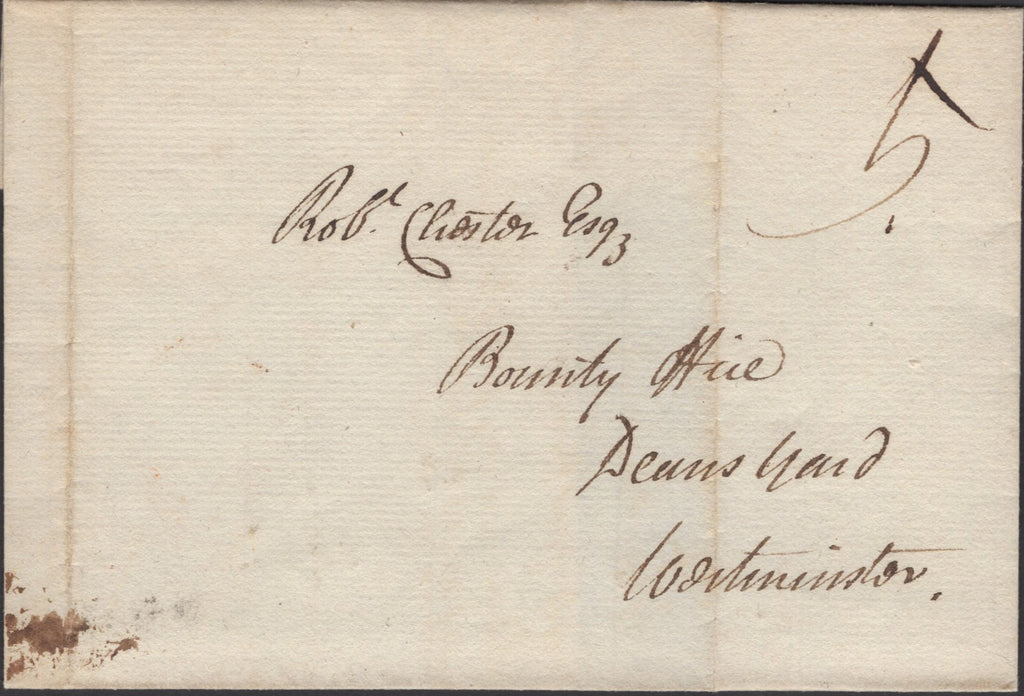 5
Robt. Chester Esqr
Bounty Office
Deans Yard
Westminster.